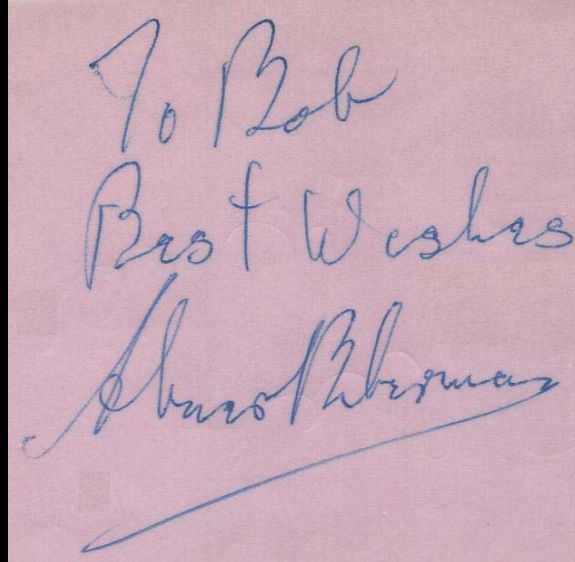 To Bob
Best Wishes
Abner Biberman